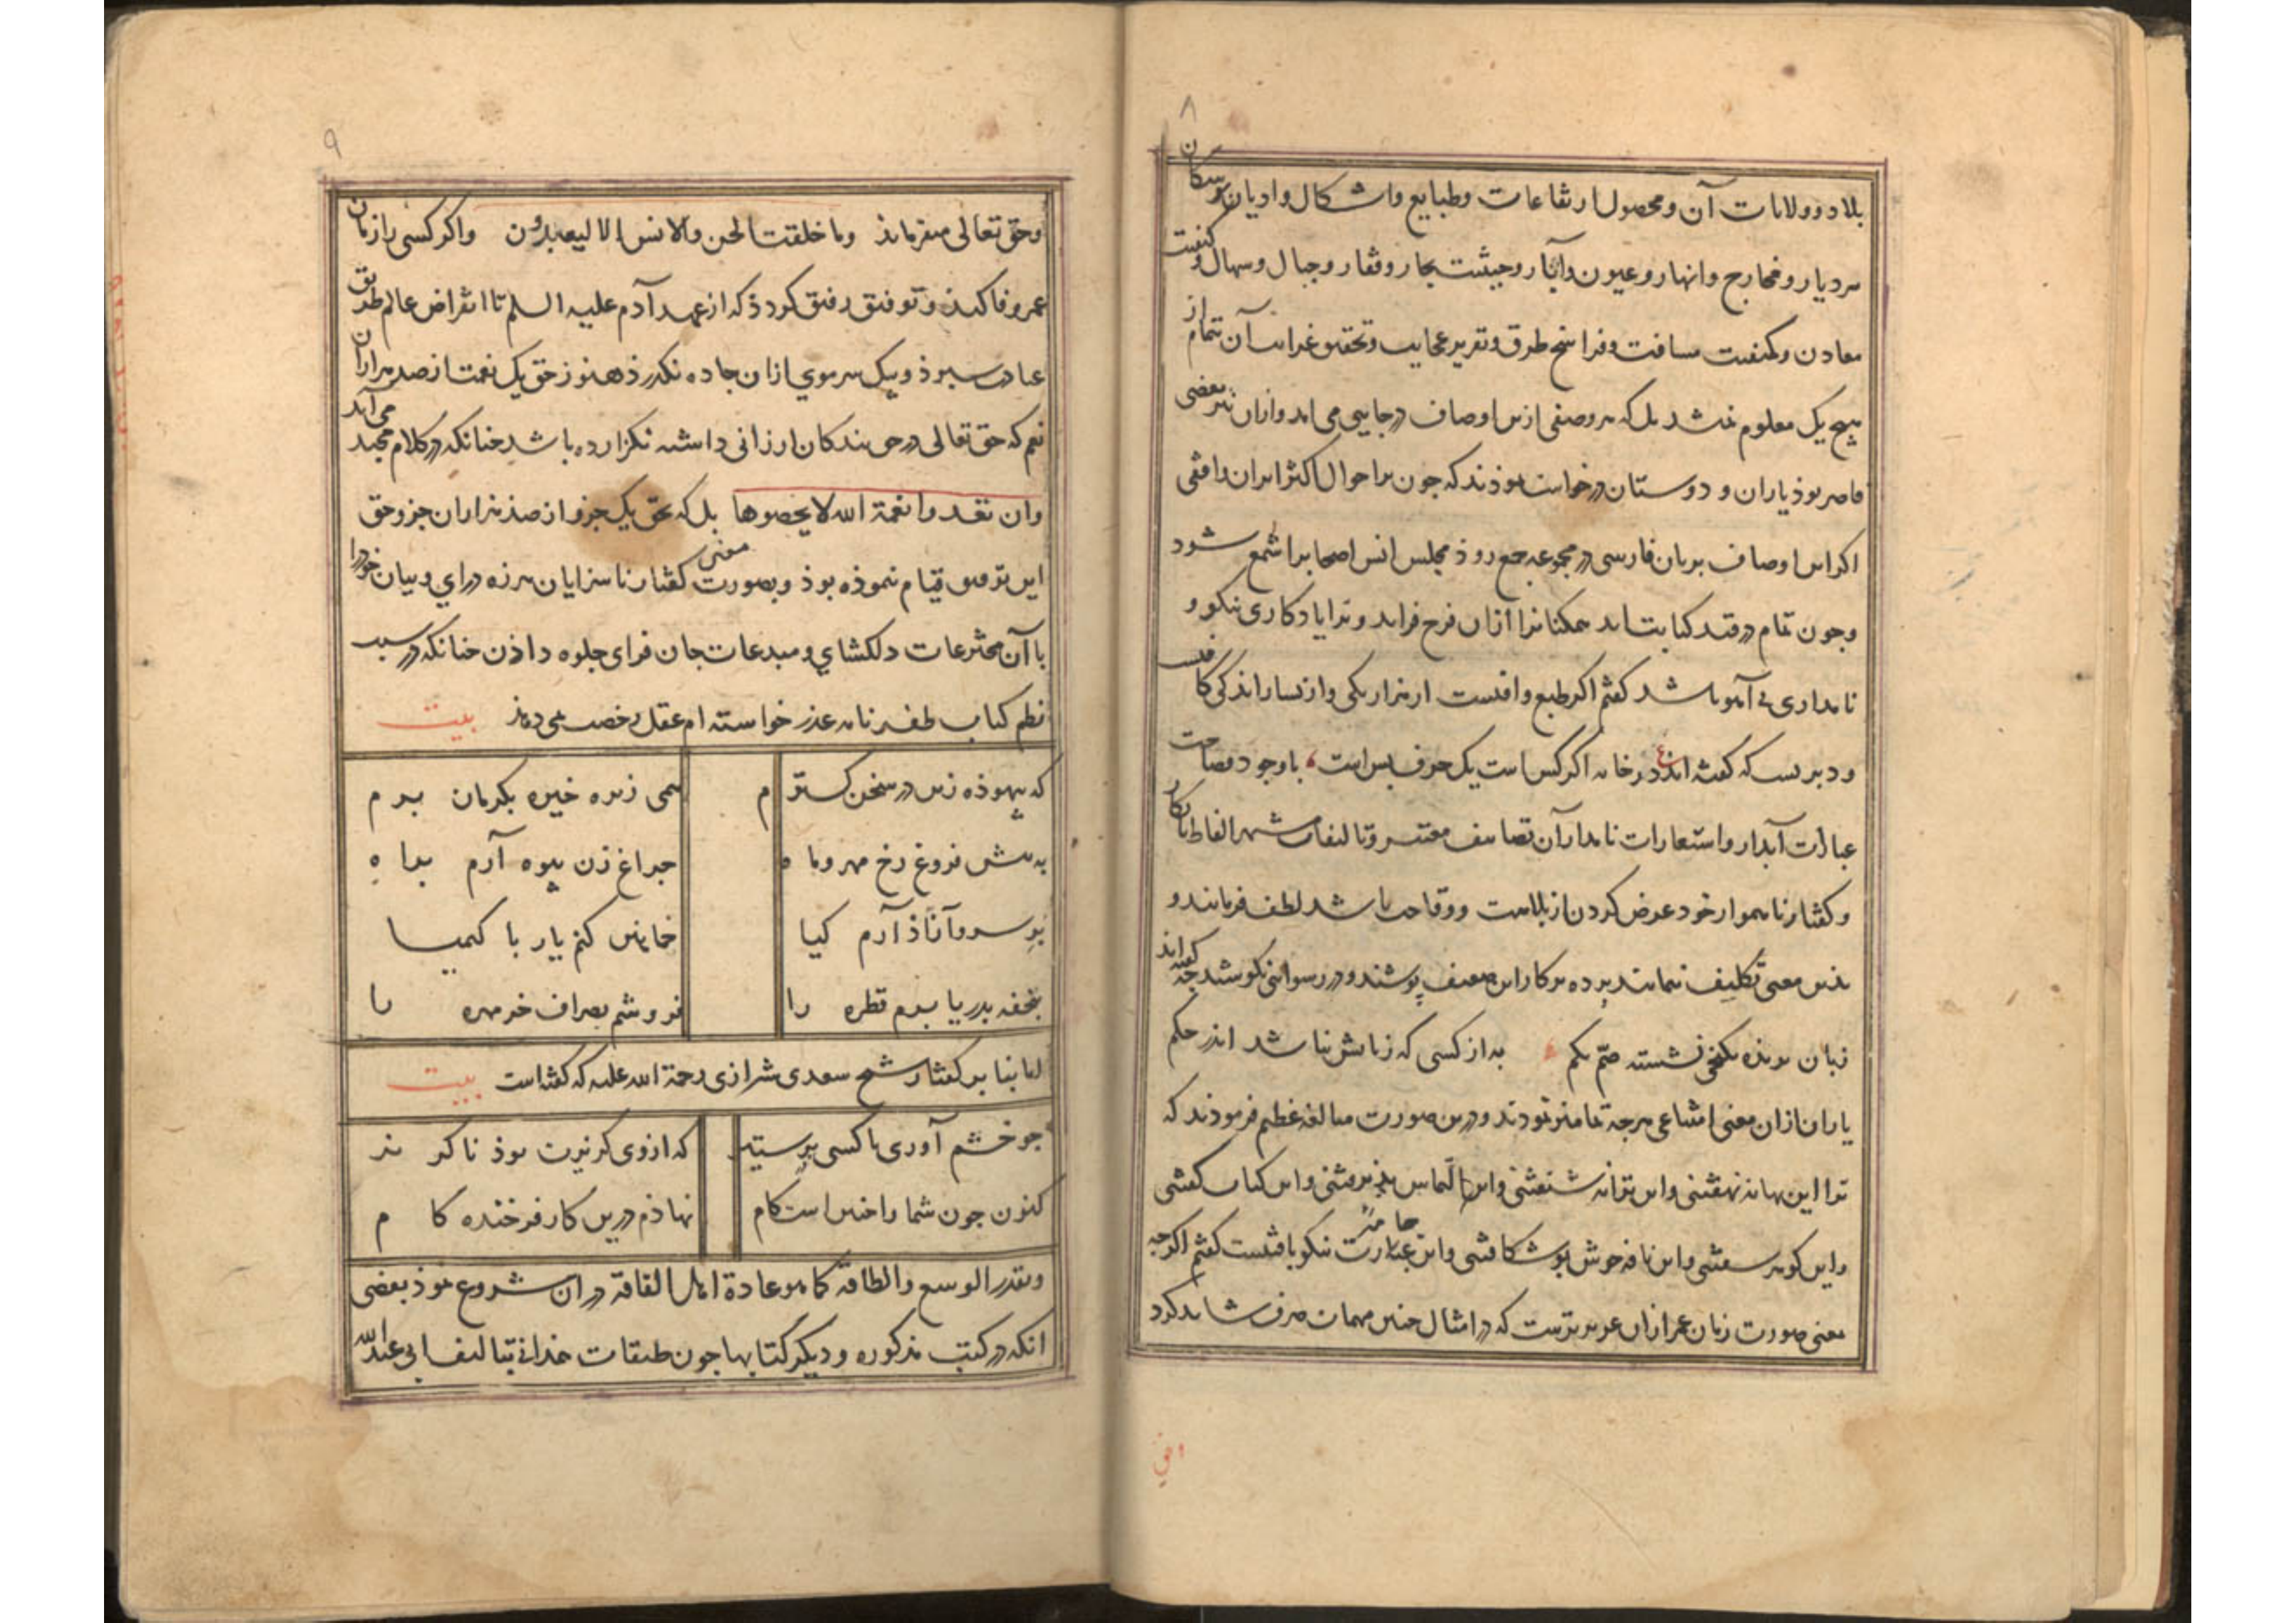 ۸
بلاد و ولایات آن و محصول ارتفاعات و طبایع و اشکال و ادیان و سکان
هر دیار و مخارج و انهار و عیون و آبار و حیثیت بحار و قفار و جبال و سهال و کیفیت
معادن و کمیت مسافت و فراسخ طرق و تقریر عجایب و تحقیق غرایب آن تمام از
هیچ یک معلوم نشد بل که هر وصفی ازین اوصاف در جایی می اید و ازان نیز بعضی
قاصر بوذ یاران و دوستان درخواست نموذند که جون بر احوال اکثر ایران واقفی
اکر این اوصاف بزبان فارسی در مجموعه جمع روذ مجلس انس اصحاب را شمع شود
و جون تمام در قید کتابت اید همکنانرا ازان فرح فزاید و ترا یادکاری نیکو و
نامداری بی آهو باشد کفتم اکر طبع وافیست از هزار یکی و از بسیار اندکی کافیست
و دیریست که کفته اند ع در خانه اکر کس است یک حرف بس است با وجود فصاحت
عبارات آبدار و استعارات نامدار آن تصانیف معتبر و تالیفات مشهر الفاظ نابکار
و کفتار ناهموار خود عرض کردن از بلاهت و وقاحت باشد لطف فرمایند و
بذین معنی تکلیف ننمایند پرده بر کار این ضعیف بپوشند و در رسوائی نکوشند جه کفته اند
زبان بریذه بکنجی نشسته صم بکم به از کسی که زبانش نباشد اندر حکم
یاران ازان معنی امتناعی هرجه تمامتر نمودند و درین صورت مبالغه عظیم فرموذند که
ترا این بهانه نهفتنی و این ترانه شنفتنی و این التماس پذیرفتنی و این کتاب کفتنی
و این کوهر سفتنی و این نافه خوش بو شکافتنی و این جامه عبارت نیکو بافتنیست کفتم اکرجه
معنی صورت زمان عمر ازان عزیزترست که در امثال جنین مهمات صرف شاید کرد
۹
و حق تعالی میفرماید وما خلقت الجن والانس الا لیعبدون و اکر کسی را زمان
عمر وفا کند و توفیق رفیق کردذ که از عهد آدم علیه السلم تا انقراض عالم طریق
عبادت سپرذ و یک سر موی ازان جاده نکذرذ هنوز حق یک نعمت از صد هزاران
نعم که حق تعالی در حق بندکان ارزانی داشته نکزارده باشد جنانکه در کلام مجید می آید
وان تعدوا نعمة الله لا تحصوها بل که بحق یک جزو از صد هزاران جزو حق
این ترهیق قیام ننموذه بوذ و بصورت معنی کفتار ناسزایان هرزه درای و بیان خود را
با آن مخترعات دلکشای و مبدعات جان فزای جلوه داذن جنانکه در سبب
نظم کتاب ظفرنامه عذر خواسته ام عقل رخصت نمی دهذ بیت
که بیهوذه زین در سخن کسترم همی زیره خیره بکرمان برم
به پیش فروغ رخ مهر و ماه جراغ زن بیوه آرم براه
بر سرو آزاذ آرم کیا خماهن کنم یار با کیمیا
بتحفه بدریا برم قطره را فروشم بصراف خرمهره را
اما بنا بر کفتار شیخ سعدی شیرازی رحمة الله علیه که کفته است بیت
جو خشم آوری با کسی بر ستیز که از وی کزیرت بوذ ناکزیر
کنون جون شما را جنین است کام نهاذم درین کار فرخنده کام
و بقدر الوسع والطاقة کما هو عادة اهل الفاقة در ان شروع نموذ بعضی
انکه در کتب مذکوره و دیکر کتابها جون طبقات همدانی تالیف ابی عبدالله